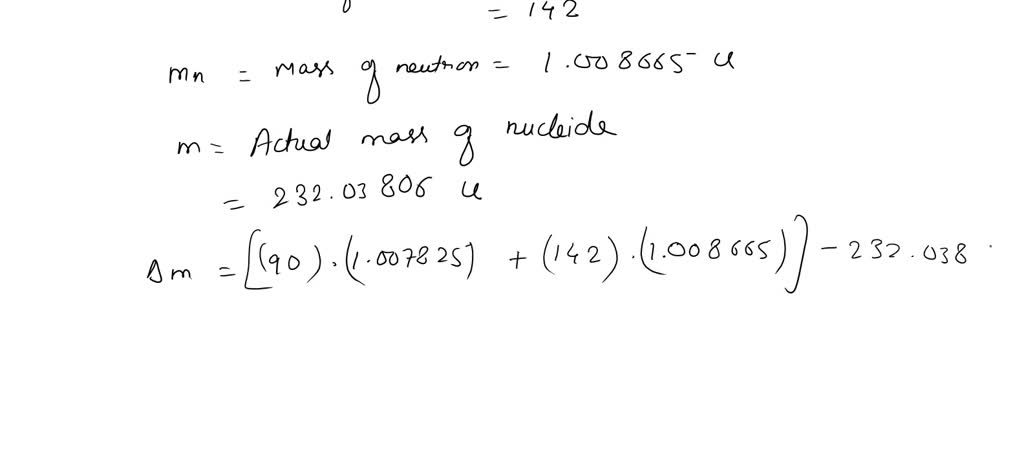 = 142
mn = mass of neutron = 1.008665 u
m = Actual mass of nucleide
= 232.03806 u
Δm = [(90).(1.007825) + (142).(1.008665)] - 232.038